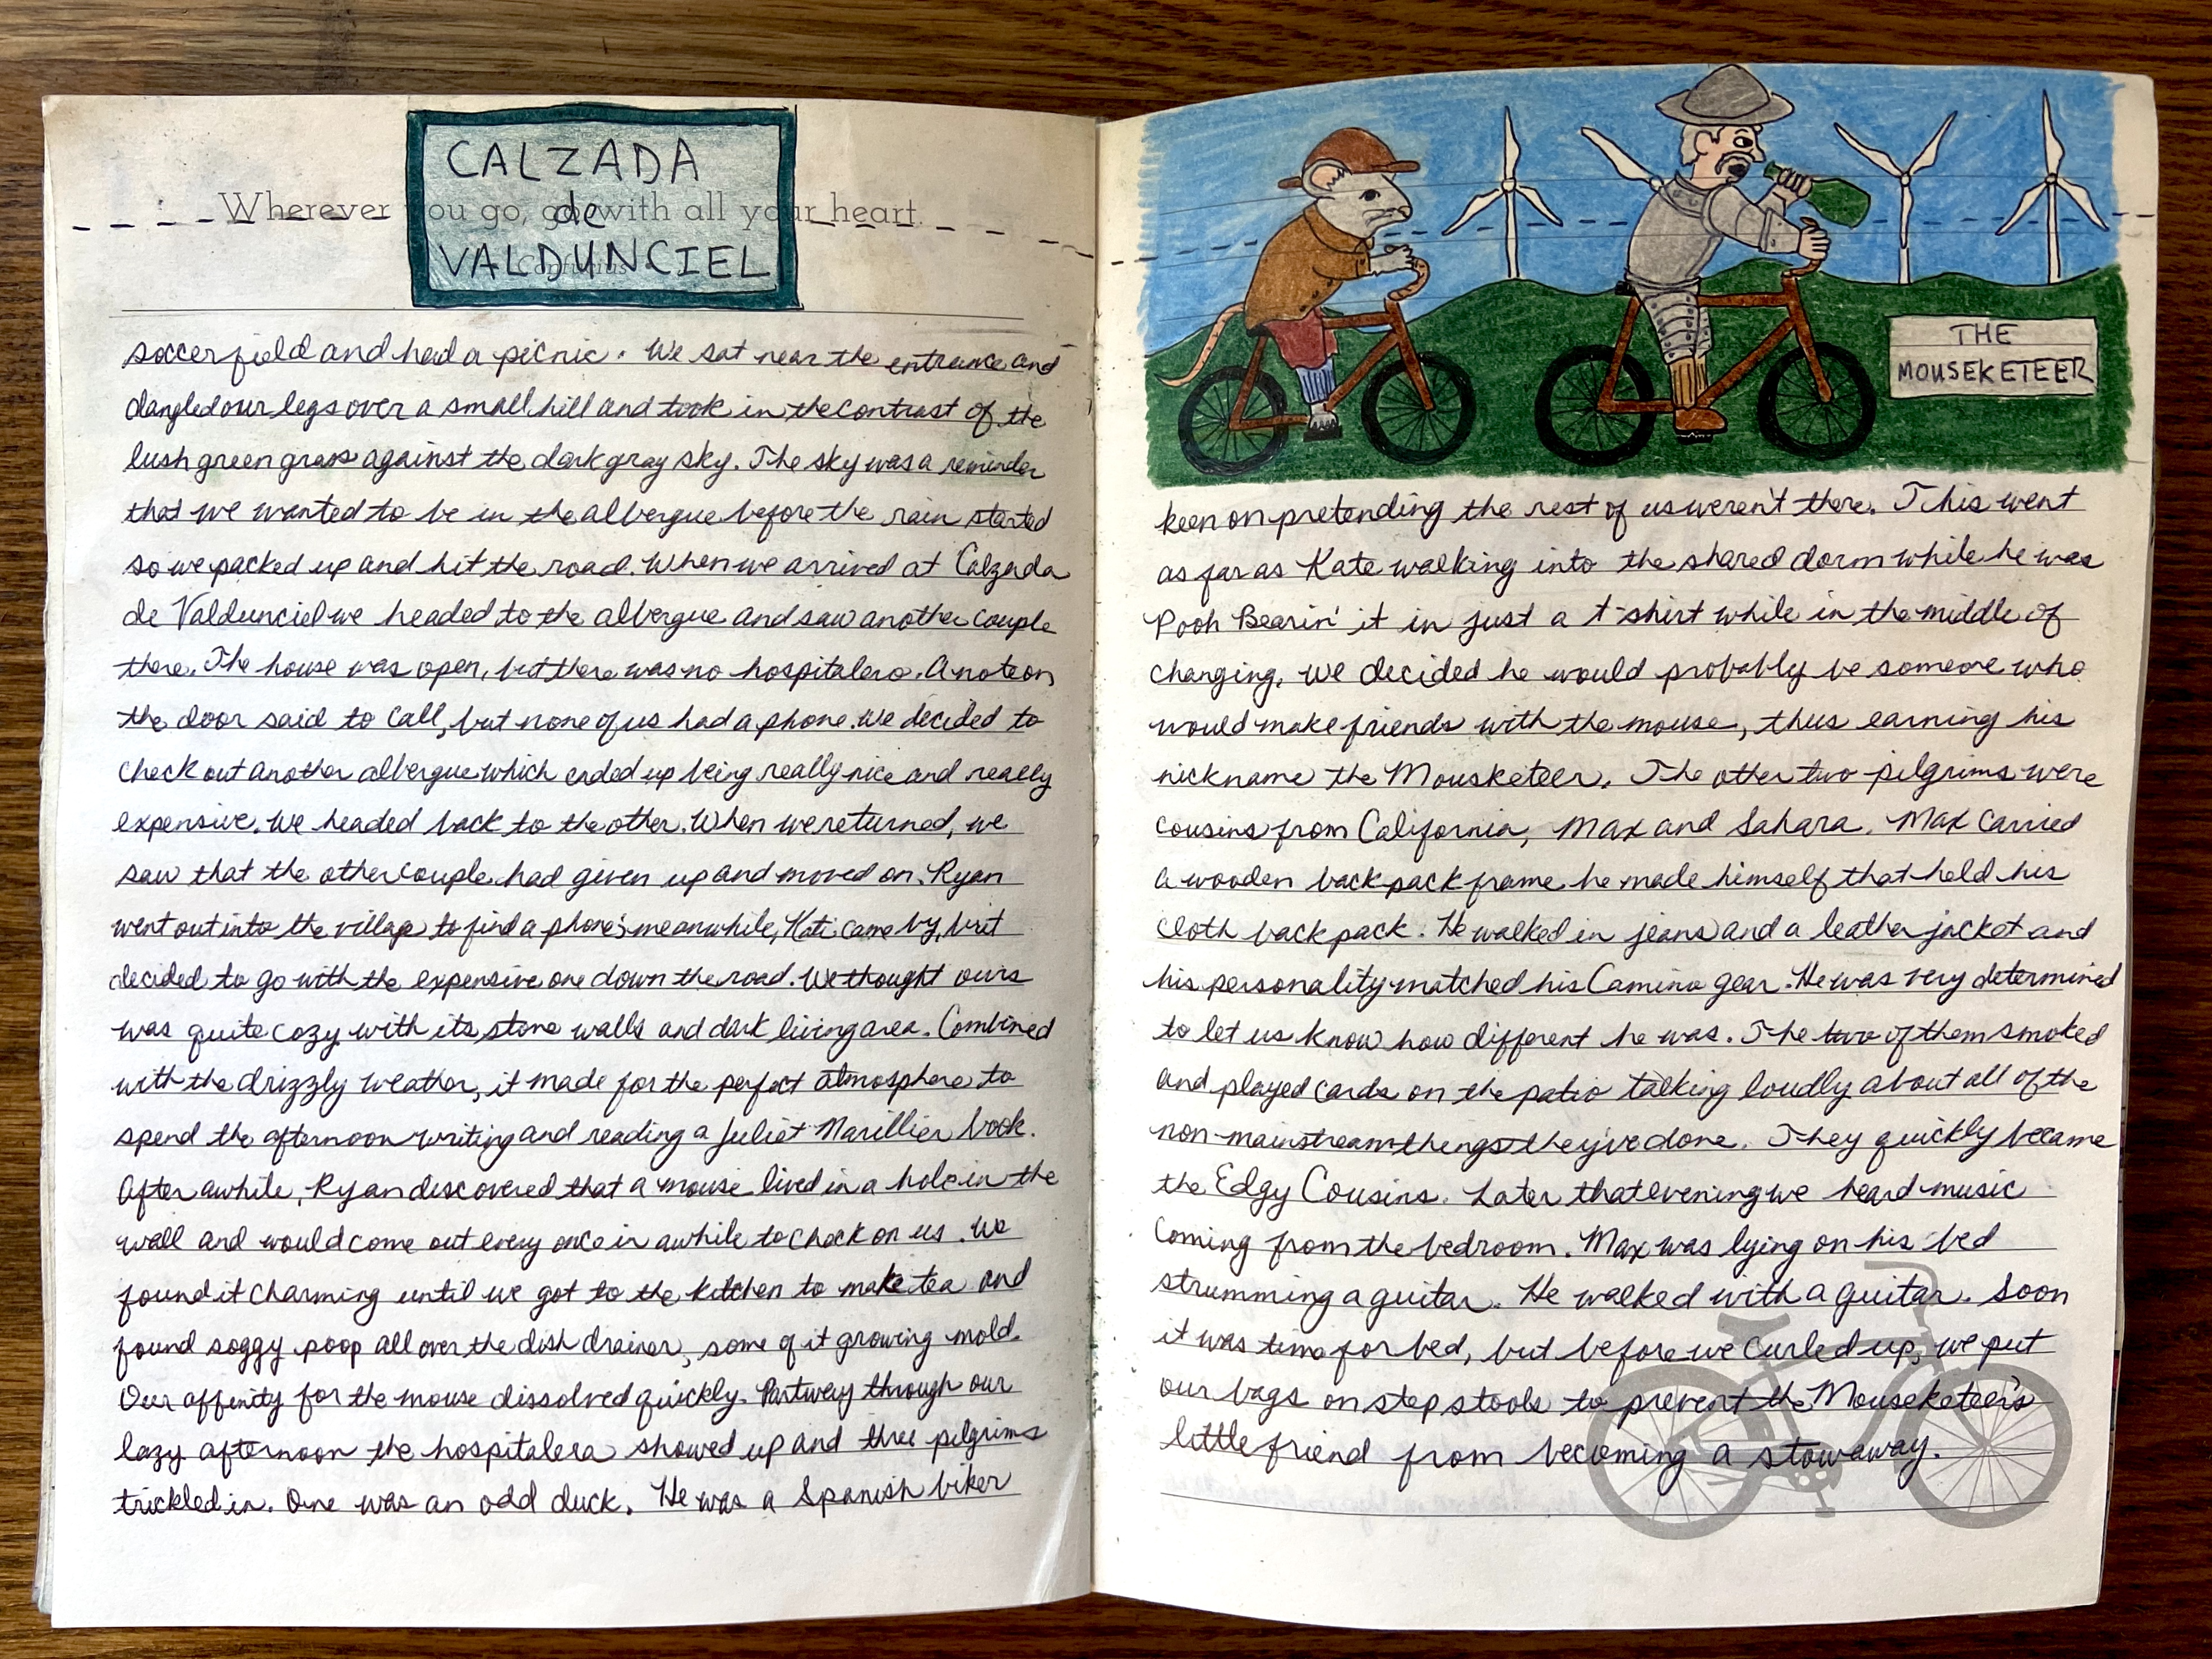 CALZADA
de
VALDUNCIEL
Wherever you go, go with all your heart.
Confucius
soccer field and had a picnic. We sat near the entrance and
dangled our legs over a small hill and took in the contrast of the
lush green grass against the dark gray sky. The sky was a reminder
that we wanted to be in the albergue before the rain started
so we packed up and hit the road. When we arrived at Calzada
de Valdunciel we headed to the albergue and saw another couple
there. The house was open, but there was no hospitalero. A note on
the door said to call, but none of us had a phone. We decided to
check out another albergue which ended up being really nice and really
expensive. We headed back to the other. When we returned, we
saw that the other couple had given up and moved on. Ryan
went out into the village to find a phone; meanwhile, Kati came by, but
decided to go with the expensive one down the road. We thought ours
was quite cozy with its stone walls and dark living area. Combined
with the drizzly weather, it made for the perfect atmosphere to
spend the afternoon writing and reading a Juliet Marillier book.
After awhile, Ryan discovered that a mouse lived in a hole in the
wall and would come out every once in awhile to check on us. We
found it charming until we got to the kitchen to make tea and
found soggy poop all over the dish drainer, some of it growing mold.
Our affinity for the mouse dissolved quickly. Partway through our
lazy afternoon the hospitalera showed up and three pilgrims
trickled in. One was an odd duck. He was a Spanish biker
THE
MOUSEKETEER
keen on pretending the rest of us weren't there. This went
as far as Kate walking into the shared dorm while he was
Pooh Bearin' it in just a t-shirt while in the middle of
changing. We decided he would probably be someone who
would make friends with the mouse, thus earning his
nickname the Mousketeer. The other two pilgrims were
cousins from California, Max and Sahara. Max carried
a wooden backpack frame he made himself that held his
cloth backpack. He walked in jeans and a leather jacket and
his personality matched his Camino gear. He was very determined
to let us know how different he was. The two of them smoked
and played cards on the patio talking loudly about all of the
non-mainstream things they've done. They quickly became
the Edgy Cousins. Later that evening we heard music
coming from the bedroom. Max was lying on his bed
strumming a guitar. He walked with a guitar. Soon
it was time for bed, but before we curled up, we put
our bags on step stools to prevent the Mouseketeer's
little friend from becoming a stowaway.